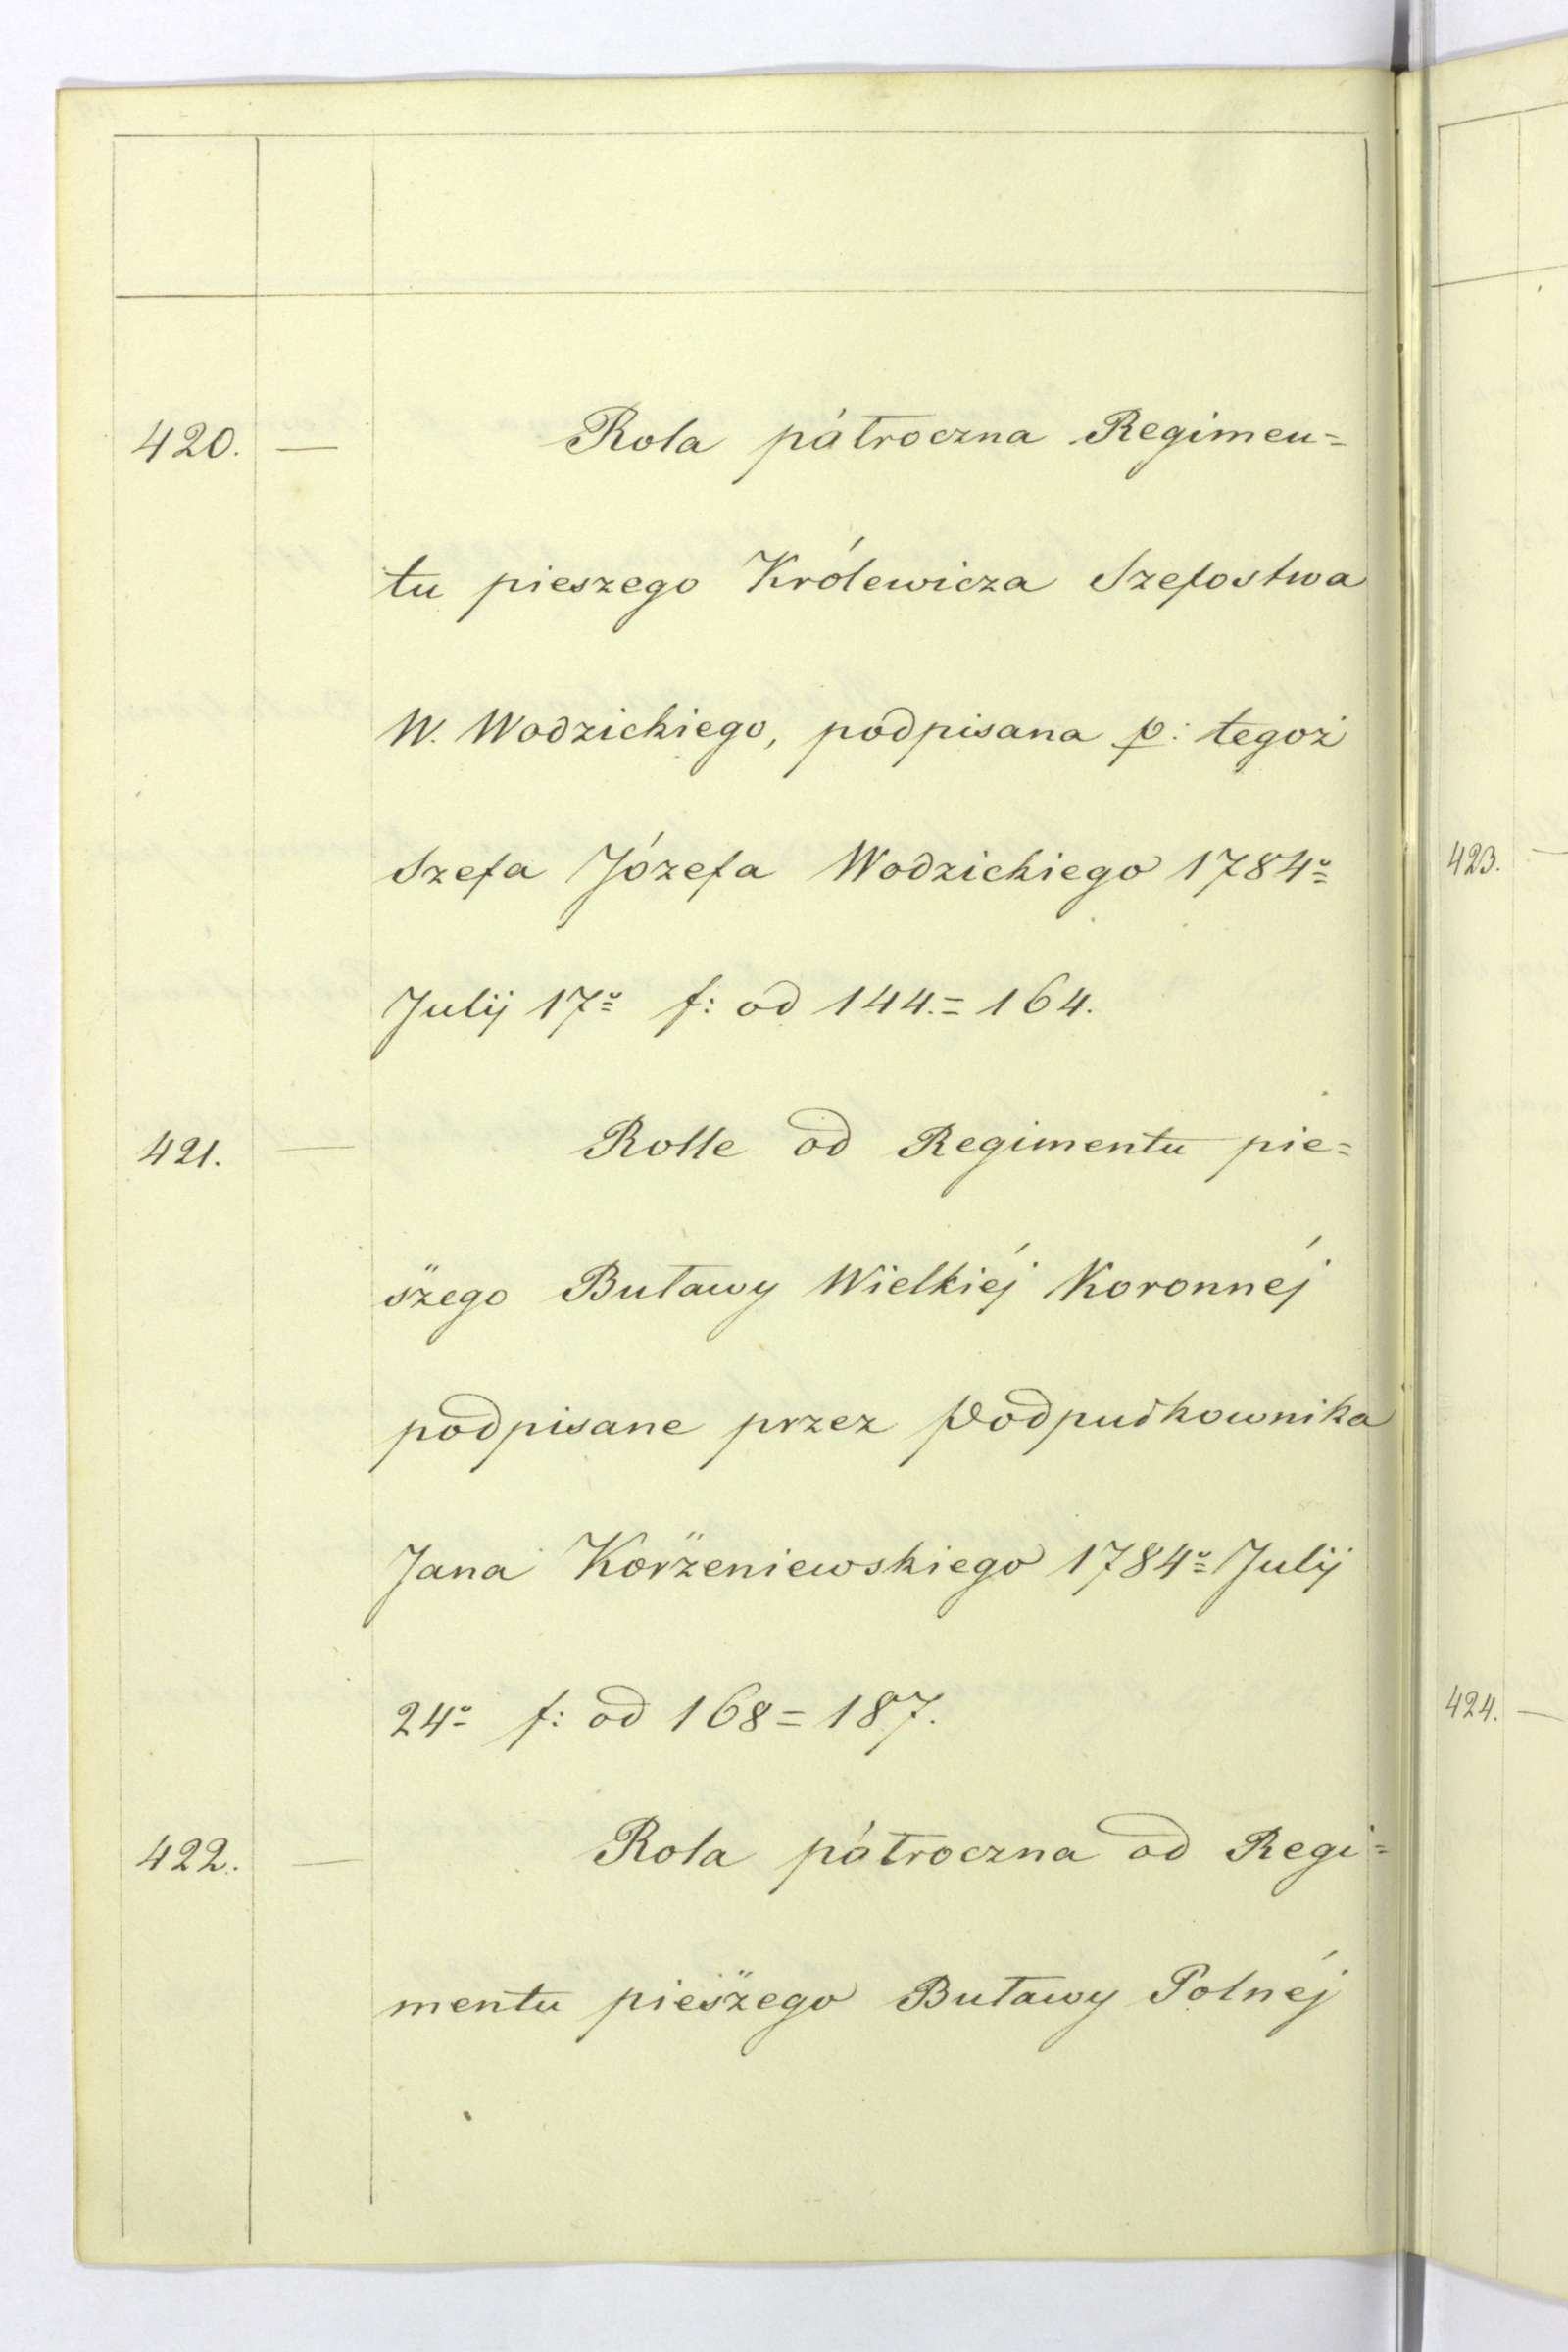 420. — Rola półroczna Regimen=
tu pieszego Królewicza Szefostwa
W. Wodzickiego, podpisana p: tegoż
Szefa Józefa Wodzickiego 1784º
Julij 17º f: od 144.=164.
421. — Rolle od Regimentu pie=
szego Buławy Wielkiéj Koronnéj
podpisane przez Podpułkownika
Jana Korżeniewskiego 1784º Julij
24º f: od 168=187.
422. — Rola półroczna od Regi=
mentu pieszego Buławy Polnéj
423. —
424. —